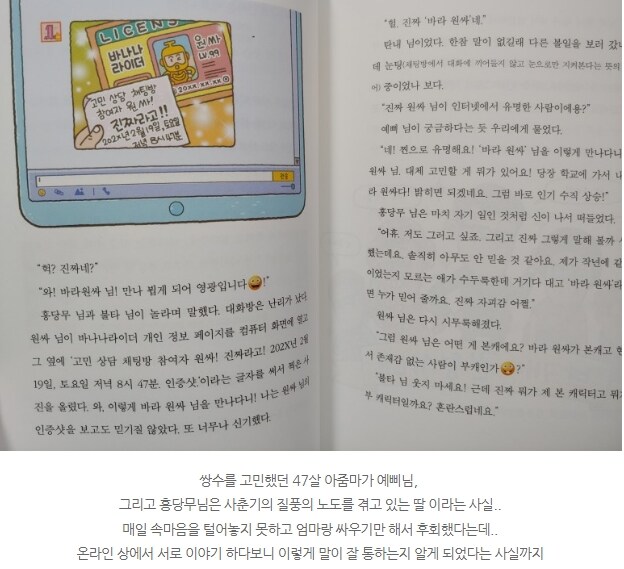 1
LICENS
바나나
라이더
원싸
LV.99
20XX.XX.XX
고민 상담 채팅방
참여자 원싸!
진짜라고!!
202X년 2월 19일, 토요일
저녁 8시 47분
전송
“헉? 진짜네?”
“와! 바라원싸 님! 만나 뵙게 되어 영광입니다😀!”
홍당무 님과 불타 님이 놀라며 말했다. 대화방은 난리가 났다.
원싸 님이 바나나라이더 개인 정보 페이지를 컴퓨터 화면에 띄고
그 옆에 ‘고민 상담 채팅방 참여자 원싸! 진짜라고! 202X년 2월
19일, 토요일 저녁 8시 47분. 인증샷.’이라는 글자를 써서 찍은 사
진을 올렸다. 와, 이렇게 바라 원싸 님을 만나다니! 나는 원싸 님의
인증샷을 보고도 믿기질 않았다. 또 너무나 신기했다.
“헐. 진짜 ‘바라 원싸’네.”
탄내 님이었다. 한참 말이 없길래 다른 볼일을 보러 갔나
데 눈팅(채팅방에서 대화에 끼어들지 않고 눈으로만 지켜본다는 뜻의
어) 중이었나 보다.
“진짜 원싸 님이 인터넷에서 유명한 사람이에용?”
예삐 님이 궁금하다는 듯 우리에게 물었다.
“네! 찐으로 유명해요! ‘바라 원싸’ 님을 이렇게 만나다니
원싸 님. 대체 고민할 게 뭐가 있어요! 당장 학교에 가서 내
라 원싸다! 밝히면 되겠네요. 그럼 바로 인기 수직 상승!”
홍당무 님은 마치 자기 일인 것처럼 신이 나서 떠들었다.
“어휴. 저도 그러고 싶죠. 그리고 진짜 그렇게 말해 볼까
했는데요. 솔직히 아무도 안 믿을 것 같아요. 제가 작년에 같
이었는지 모르는 애가 수두룩한데 거기다 대고 ‘바라 원싸’라
면 누가 믿어 줄까요. 진짜 자괴감 어쩔.”
원싸 님은 다시 시무룩해졌다.
“그럼 원싸 님은 어떤 게 본캐에요? 바라 원싸가 본캐고 현
서 존재감 없는 사람이 부캐인가😜?”
“불타 님 웃지 마세요! 근데 진짜 뭐가 제 본 캐릭터고 뭐가
부 캐릭터일까요? 혼란스럽네요.”
쌍수를 고민했던 47살 아줌마가 예삐님,
그리고 홍당무님은 사춘기의 질풍의 노도를 겪고 있는 딸 이라는 사실..
매일 속마음을 털어놓지 못하고 엄마랑 싸우기만 해서 후회했다는데..
온라인 상에서 서로 이야기 하다보니 이렇게 말이 잘 통하는지 알게 되었다는 사실까지